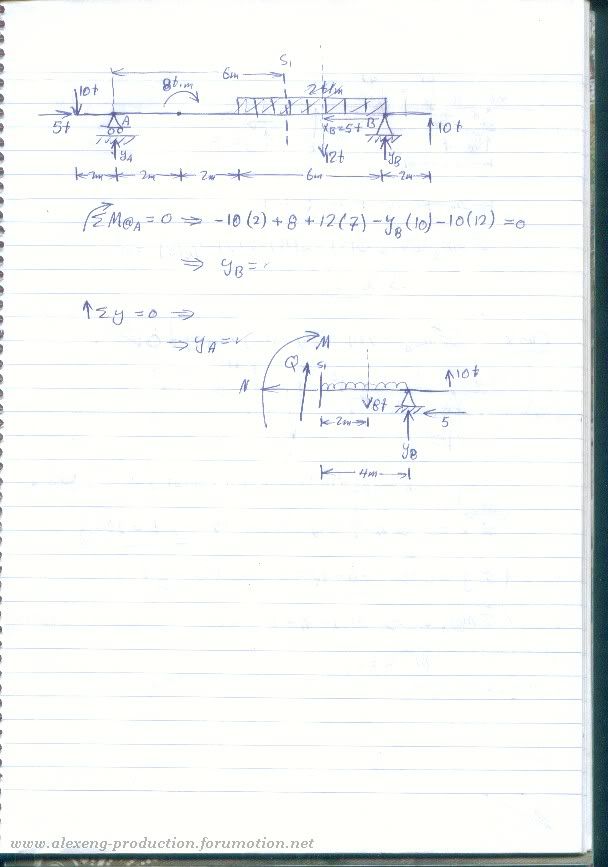 S1
6m
10t
8t.m
2t/m
5t
A
XB=5t
B
10t
yA
12t
yB
2m 2m 2m 6m 2m
ΣM@A = 0 ⇒ -10(2) + 8 + 12(7) - yB(10) - 10(12) = 0
⇒ yB = ✓
↑Σy = 0 ⇒
⇒ yA = ✓
M
Q
S1
10t
N
8t
2m
5
yB
4m
www.alexeng-production.forumotion.net